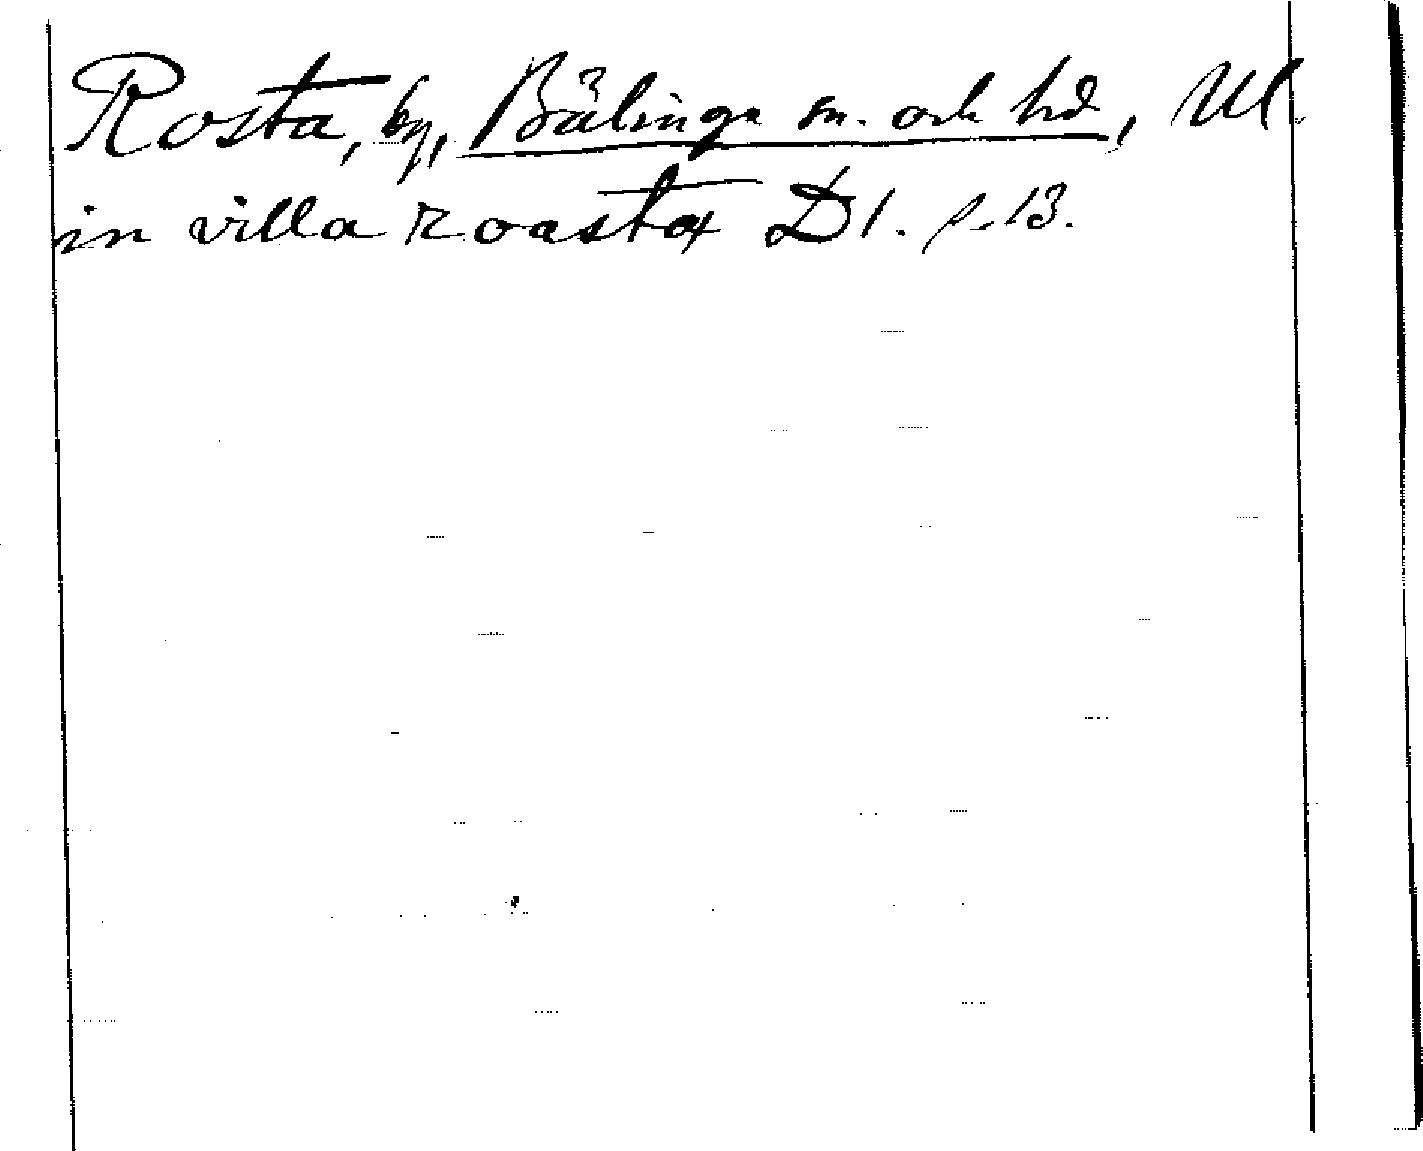 Rosta, by, Bälinge sn. och hd, Ul.
in villa roasta D1. s. 13.